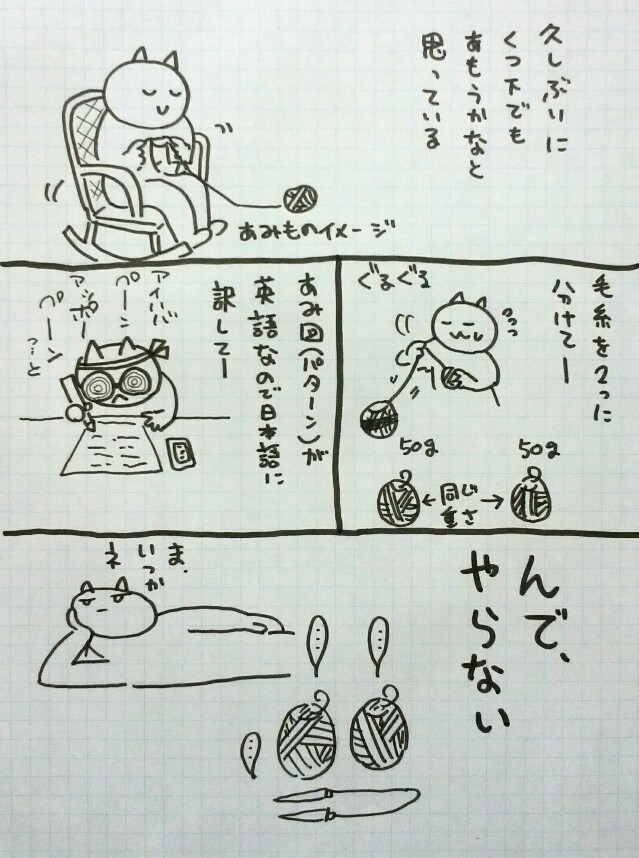 久しぶりに
くつ下でも
あもうかなと
思っている
あみものイメージ
毛糸を2つに
分けてー
ぐるぐる
50g
50g
←同じ→
重さ
あみ図(パターン)が
英語なので日本語に
訳してー
アイハバ
ペーン
アンポー
ペーン
っ…と
んで、
やらない
ま、
いつか
ネ